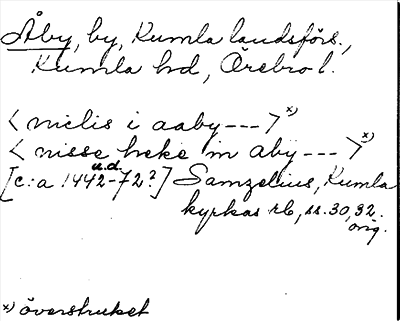 Åby, by, Kumla landsförs.,
Kumla hd, Örebro l.
< niclis i aaby --- > x)
< nisse heke in aby --- > x)
[c:a 1442-72?] u.d. Samzelius, Kumla
kyrkas rb, ss. 30, 32.
orig.
x) överstruket